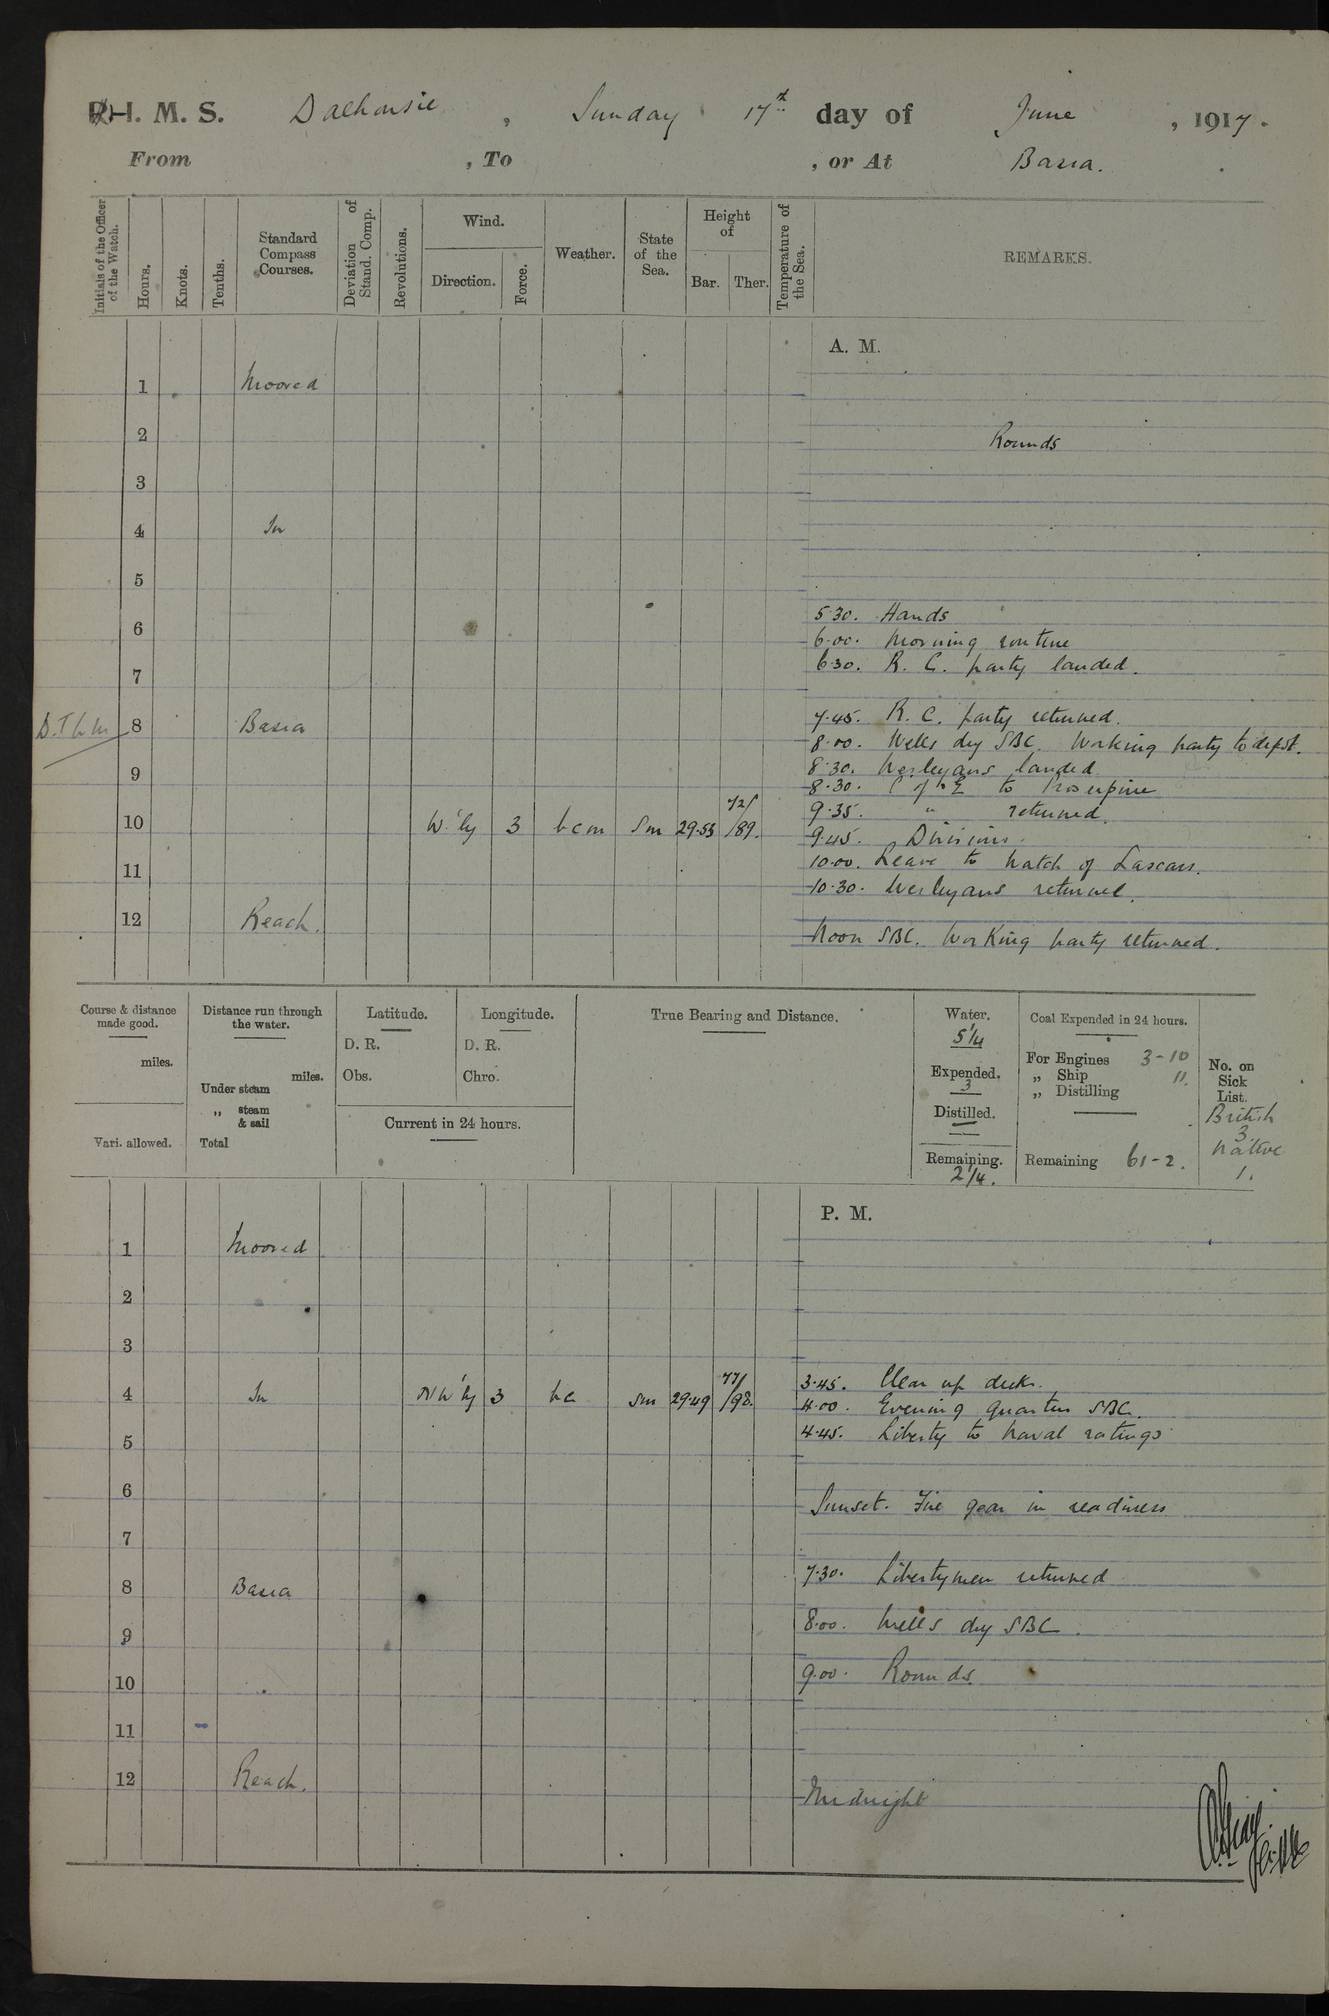 R. I. M. S. Dalhousie, Sunday 17th day of June, 1917.
From , To , or At Basra.
Initials of the Officer of the Watch.
Hours.
Knots.
Tenths.
Standard Compass Courses.
Deviation of Stand. Comp.
Revolutions.
Wind.
Direction.
Force.
Weather.
State of the Sea.
Height of
Bar.
Ther.
Temperature of the Sea.
REMARKS.
A. M.
1 Moored
2 Rounds
3
4 In
5
5.30. Hands
6
6.00. Morning routine
6.30. R. C. party landed.
7
7.45. R. C. party returned.
8 Basra
8.00. Wells dry SBC. Working party to depot.
8.30. Wesleyans landed
9
8.30. C of E to Proserpine
9.35. " returned.
10 W'ly 3 bcm Sm 29.53 72/89.
9.45. Divisions.
10.00. Leave to Watch of Lascars.
11
10.30. Wesleyans returned.
12 Reach.
Noon SBC. Working party returned.
Course & distance made good.
miles.
Vari. allowed.
Distance run through the water.
miles.
Under steam
„ steam & sail
Total
Latitude.
D. R.
Obs.
Longitude.
D. R.
Chro.
Current in 24 hours.
True Bearing and Distance.
Water.
5 1/4
Expended.
3
Distilled.
—
Remaining.
2 1/4.
Coal Expended in 24 hours.
For Engines 3-10
„ Ship 11.
„ Distilling
Remaining 61-2.
No. on Sick List.
British
3
Native
1.
P. M.
1 Moored
2
3
3.45. Clear up decks.
4 In NW'ly 3 bc Sm 29.49 77/98.
4.00. Evening quarters SBC.
4.45. Liberty to Naval ratings
5
6
Sunset. Fire gear in readiness
7
7.30. Libertymen returned
8 Basra
8.00. Wells dry SBC.
9
9.00. Rounds.
10
11
12 Reach.
Midnight